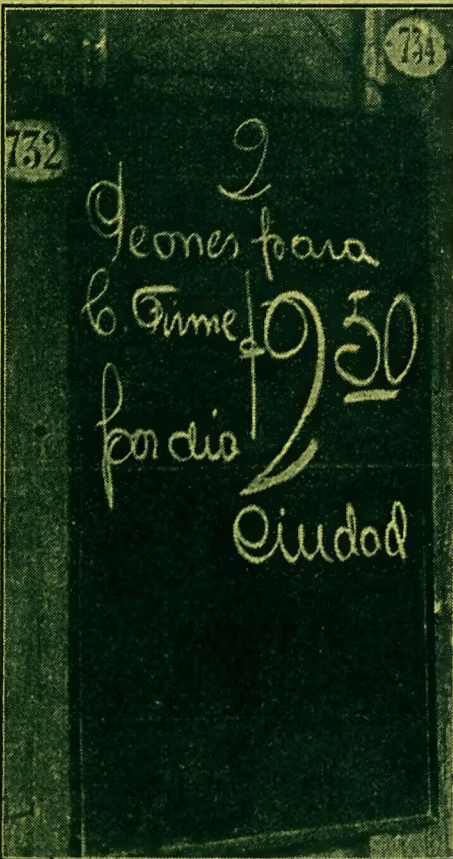 734
732
2
Peones para
C. Firme $ 2 50
por dia
Ciudad